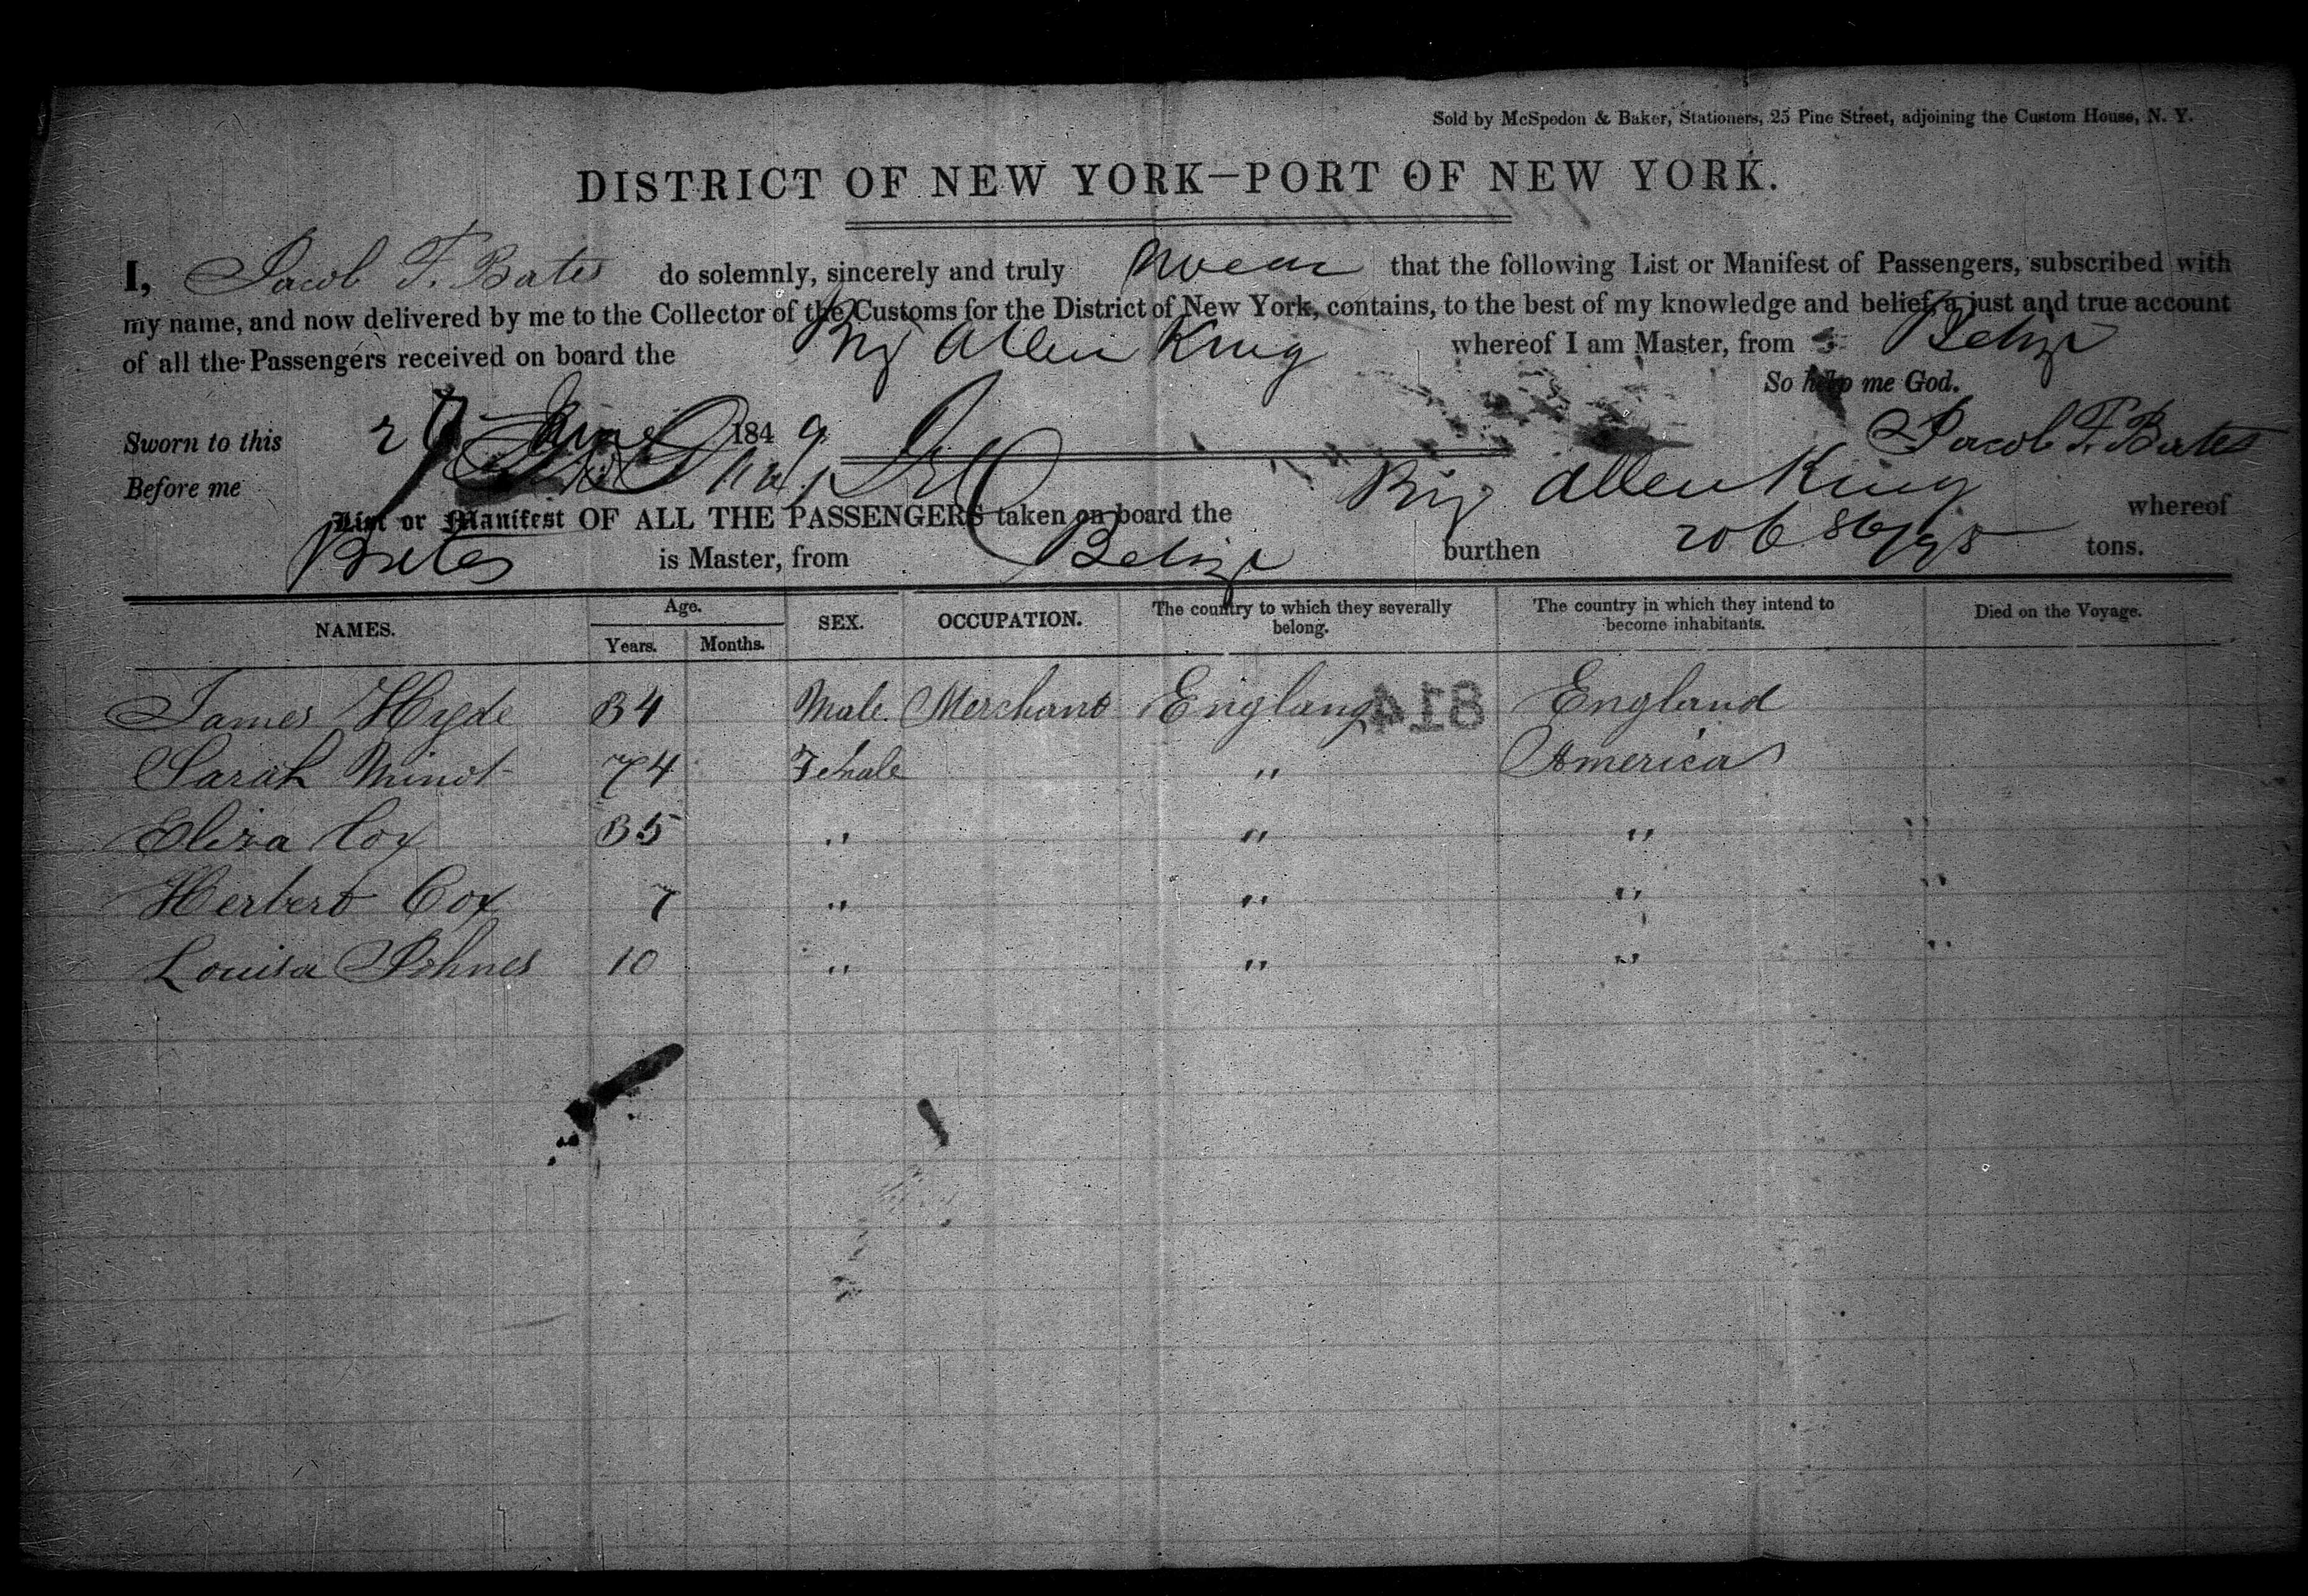 Sold by McSpedon & Baker, Stationers, 25 Pine Street, adjoining the Custom House, N. Y.
DISTRICT OF NEW YORK—PORT OF NEW YORK.
I, Jacob F. Bates do solemnly, sincerely and truly swear that the following List or Manifest of Passengers, subscribed with
my name, and now delivered by me to the Collector of the Customs for the District of New York, contains, to the best of my knowledge and belief, a just and true account
of all the Passengers received on board the Brig Allen King whereof I am Master, from Belize
So help me God.
Sworn to this 29 June 1849 Jacob F. Bates
Before me
List or Manifest OF ALL THE PASSENGERS taken on board the Brig Allen King whereof
Bates is Master, from Belize burthen 206 86/95 tons.
NAMES. Age. SEX. OCCUPATION. The country to which they severally belong. The country in which they intend to become inhabitants. Died on the Voyage.
Years. Months.
James Hyde 34 Male Merchant England 814 England
Sarah Minot 74 Female " America
Eliza Cox 35 " " "
Herbert Cox 7 " " "
Louisa Johnes 10 " " "